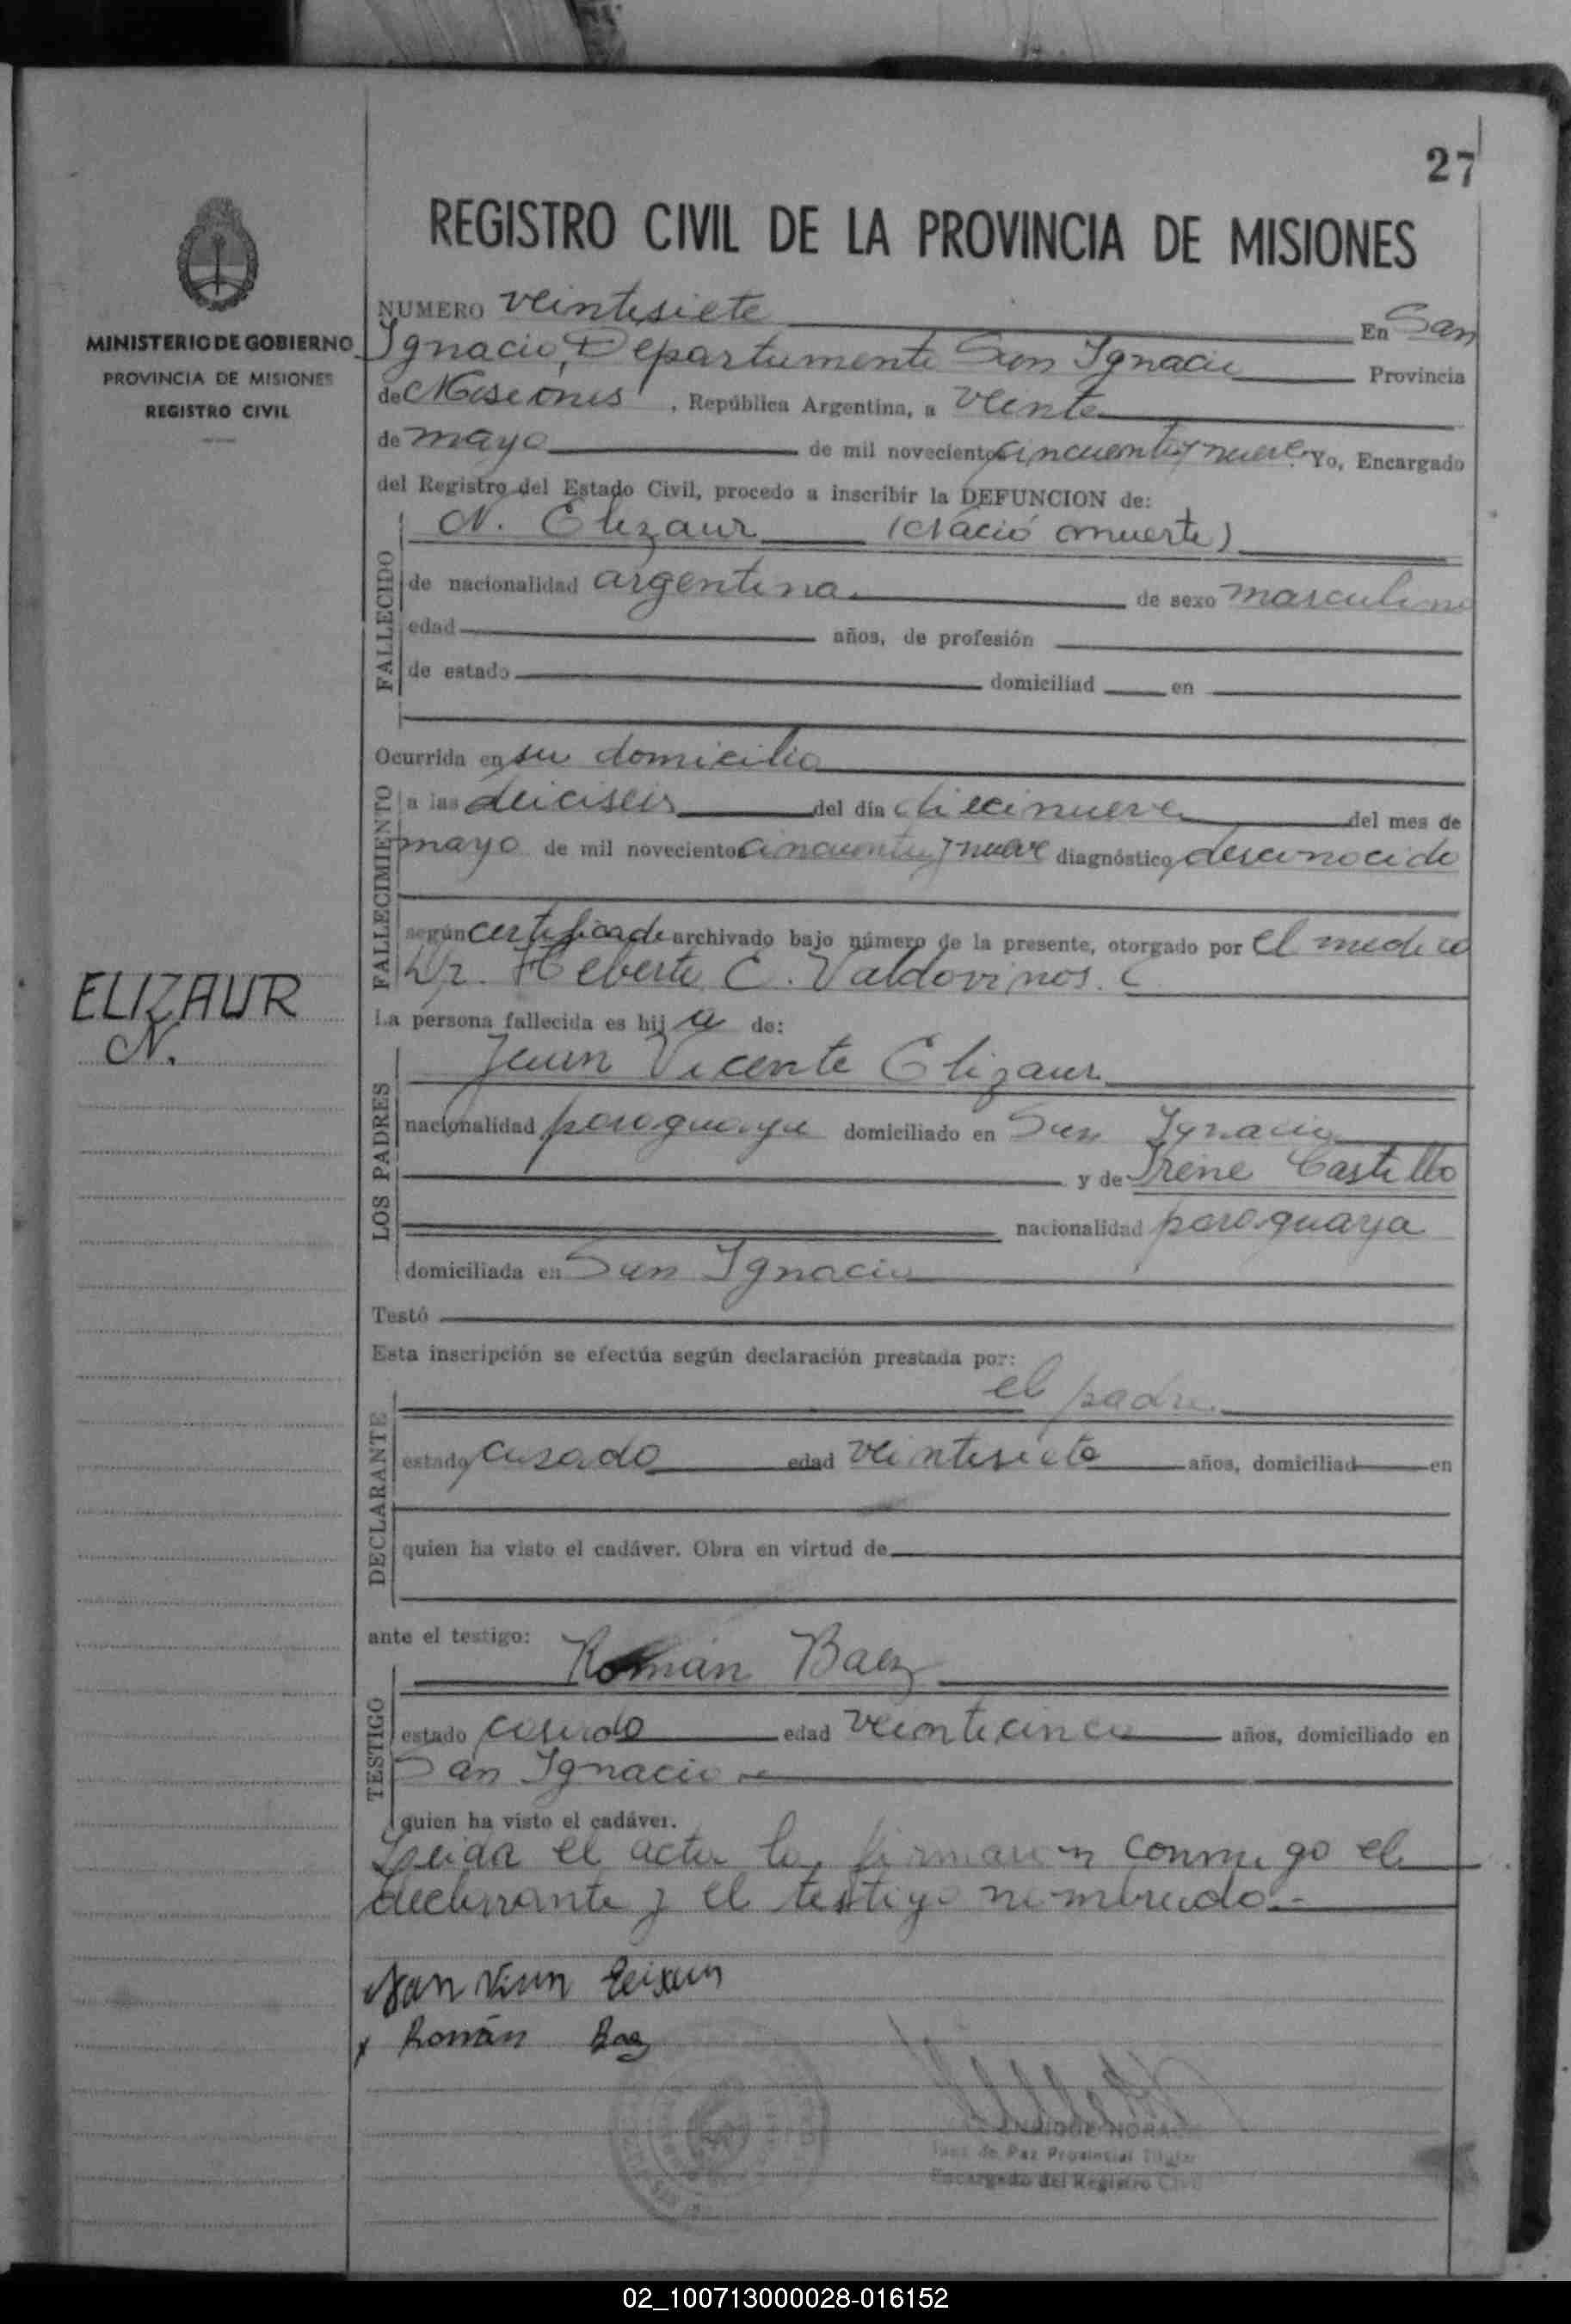 27
REGISTRO CIVIL DE LA PROVINCIA DE MISIONES
MINISTERIO DE GOBIERNO
PROVINCIA DE MISIONES
REGISTRO CIVIL
NUMERO veintisiete En San
Ignacio, Departamento San Ignacio Provincia
de Misiones, República Argentina, a veinte
de mayo de mil novecientos cincuenta y nueve. Yo, Encargado
del Registro del Estado Civil, procedo a inscribir la DEFUNCION de:
N. Elizaur (Nació muerte)
FALLECIDO
de nacionalidad argentina de sexo masculino
edad años, de profesión
de estado domiciliad en
Ocurrida en su domicilio
FALLECIMIENTO
a las deiciseis del día diecinueve del mes de
mayo de mil novecientos cincuenta y nueve diagnóstico desconocido
según certificado archivado bajo número de la presente, otorgado por el medico
Dr. Heberto C. Valdovinos.
ELIZAUR
N.
La persona fallecida es hij a de:
LOS PADRES
Juan Vicente Elizaur
nacionalidad paraguaya domiciliado en San Ignacio
y de Irene Castillo
nacionalidad paraguaya
domiciliada en San Ignacio
Testó
Esta inscripción se efectúa según declaración prestada por:
el padre
DECLARANTE
estado casado edad veintisiete años, domiciliad en
quien ha visto el cadáver. Obra en virtud de
ante el testigo:
Román Baez
TESTIGO
estado casado edad veinticinco años, domiciliado en
San Ignacio
quien ha visto el cadáver.
Leida el acta la firmaron conmigo el
declarante y el testigo nombrado.-
Román Baez
Juez de Paz Provincial Titular
Encargado del Registro Civil
02_100713000028-016152